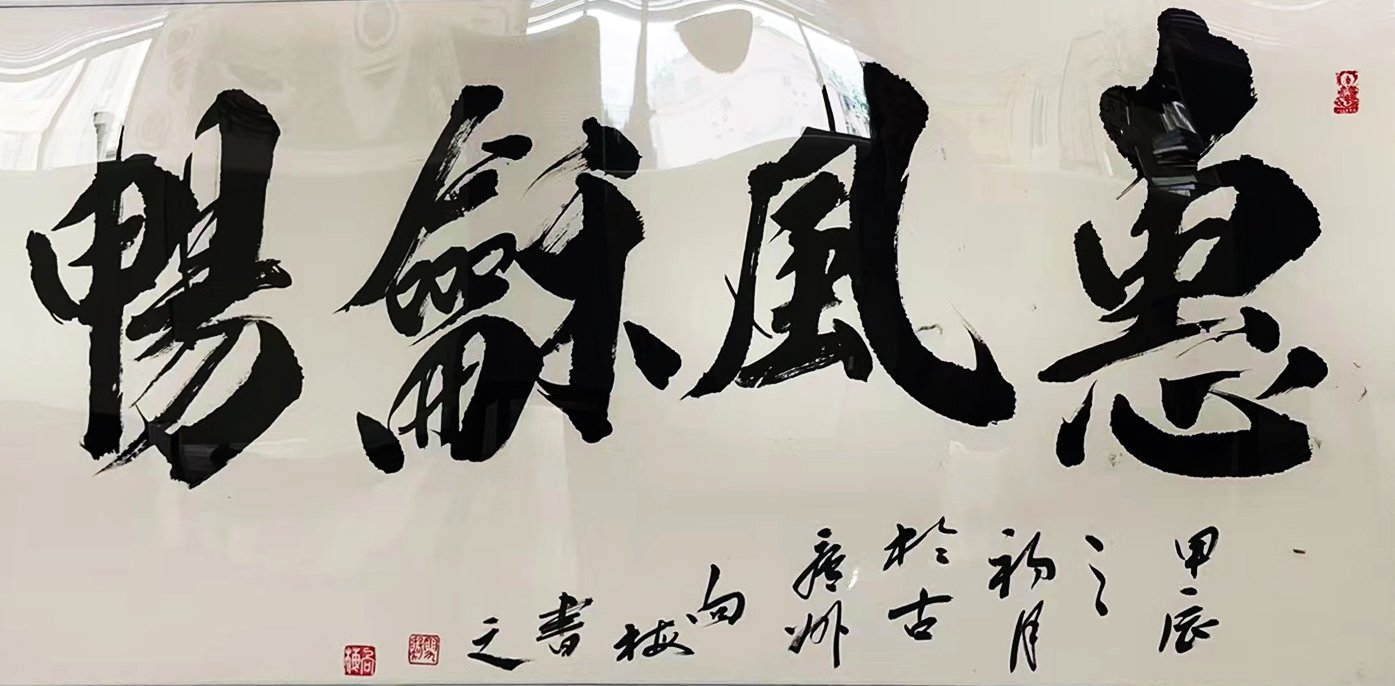 惠風龢暢
甲辰
之
初月
於古
廣州
向
梅
書
之